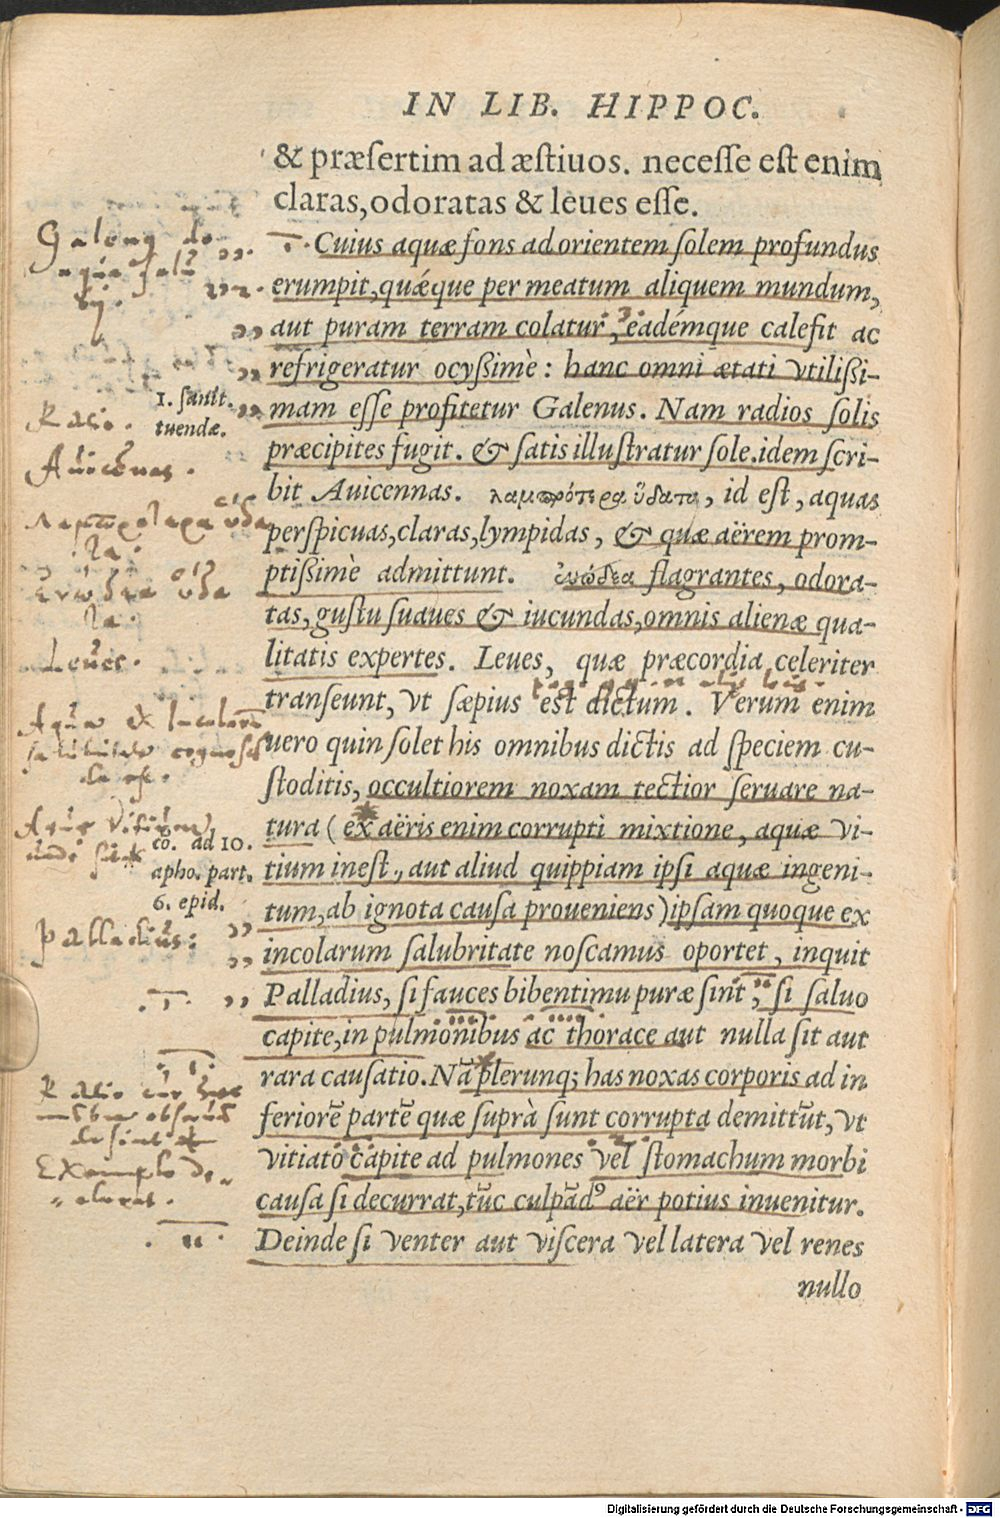 IN LIB. HIPPOC.
& præsertim ad æstiuos. necesse est enim
claras, odoratas & leues esse.
Cuius aquæ fons ad orientem solem profundus
erumpit, quæque per meatum aliquem mundum,
aut puram terram colatur, eadémque calefit ac
refrigeratur ocyßimè: hanc omni ætati vtilißi-
mam esse profitetur Galenus. Nam radios solis
præcipites fugit. & satis illustratur sole. idem scri-
bit Auicennas. λαμπρότερα ὕδατα, id est, aquas
perspicuas, claras, lympidas, & quæ aërem prom-
ptißimè admittunt. ἐυώδεα flagrantes, odora-
tas, gustu suaues & iucundas, omnis alienæ qua-
litatis expertes. Leues, quæ præcordia celeriter
transeunt, vt sæpius est dictum. Verum enim
uero quin solet his omnibus dictis ad speciem cu-
stoditis, occultiorem noxam tectior seruare na-
tura (ex aëris enim corrupti mixtione, aquæ vi-
tium inest, aut aliud quippiam ipsi aquæ ingeni-
tum, ab ignota causa proueniens) ipsam quoque ex
incolarum salubritate noscamus oportet, inquit
Palladius, si fauces bibentimu puræ sint, si saluo
capite, in pulmonibus ac thorace aut nulla sit aut
rara causatio. Nã plerunq; has noxas corporis ad in
feriorẽ partẽ quæ suprà sunt corrupta demittũt, vt
vitiato capite ad pulmones vel stomachum morbi
causa si decurrat, tũc culpãdꝰ aër potius inuenitur.
Deinde si venter aut viscera vel latera vel renes
nullo
1. sanit.
tuendæ.
co. ad 10.
apho. part.
6. epid.
Ratio.
Auicennas.
Leues.
Palladius:
Digitalisierung gefördert durch die Deutsche Forschungsgemeinschaft - DFG